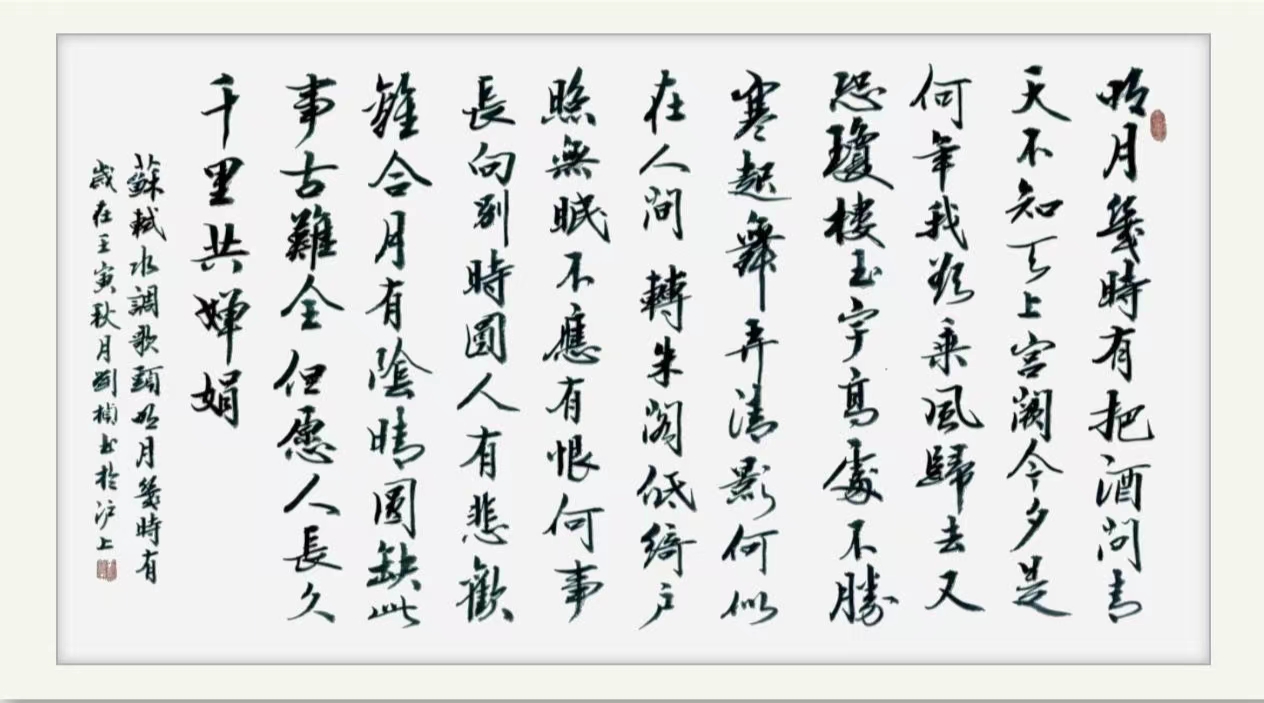 明月幾時有把酒問青
天不知天上宮闕今夕是
何年我欲乘風歸去又
恐瓊樓玉宇高處不勝
寒起舞弄清影何似
在人間 轉朱閣低綺户
照無眠不應有恨何事
長向别時圓人有悲歡
離合月有陰晴圓缺此
事古難全但愿人長久
千里共嬋娟
蘇軾水調歌頭明月幾時有
歲在壬寅秋月劉楨書於沪上